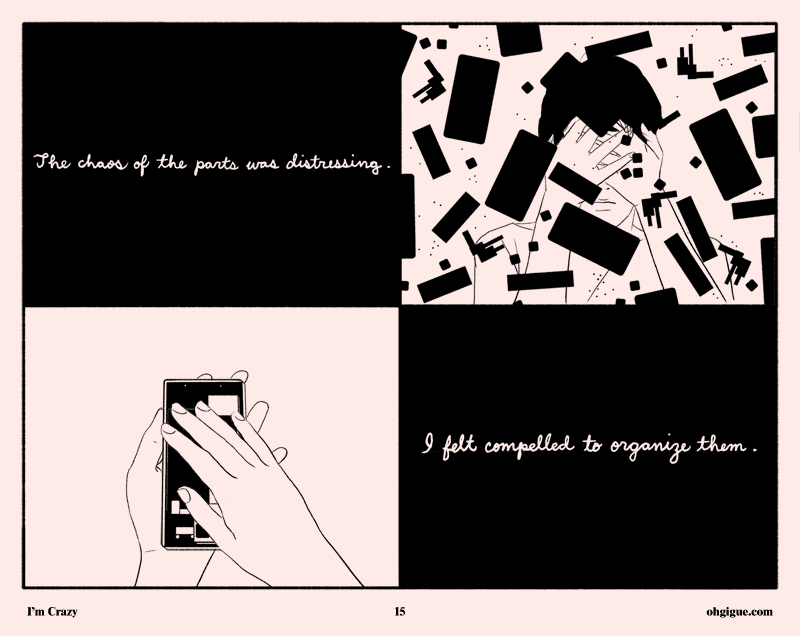 The chaos of the parts was distressing.
I felt compelled to organize them.
I'm Crazy
15
ohgigue.com